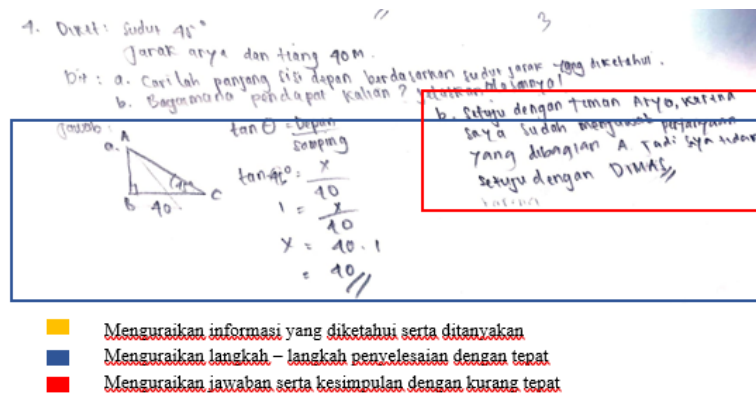 4. Diket: Sudut 45°
3
Jarak arya dan tiang 40 m.
Dit: a. Carilah panjang sisi depan berdasarkan sudut jarak yang diketahui.
b. Bagaimana pendapat kalian? Jelaskan alasannya!
Jawab:
a. A
B 40 C
45°
tan θ = Depan
Samping
tan 45° = x
40
1 = x
40
x = 40 . 1
= 40 //
b. Setuju dengan teman Aryo, karena
saya sudah menjawab pertanyaan
yang dibagian A. Jadi saya tidak
setuju dengan DIMAS //
Menguraikan informasi yang diketahui serta ditanyakan
Menguraikan langkah – langkah penyelesaian dengan tepat
Menguraikan jawaban serta kesimpulan dengan kurang tepat